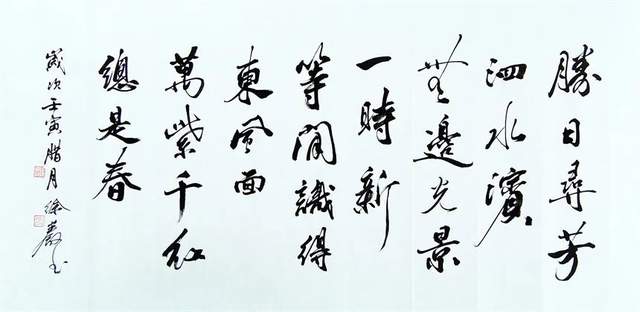 勝日尋芳
泗水濱
無邊光景
一時新
等閒識得
東風面
萬紫千紅
總是春
歲次壬寅腊月 徐
书